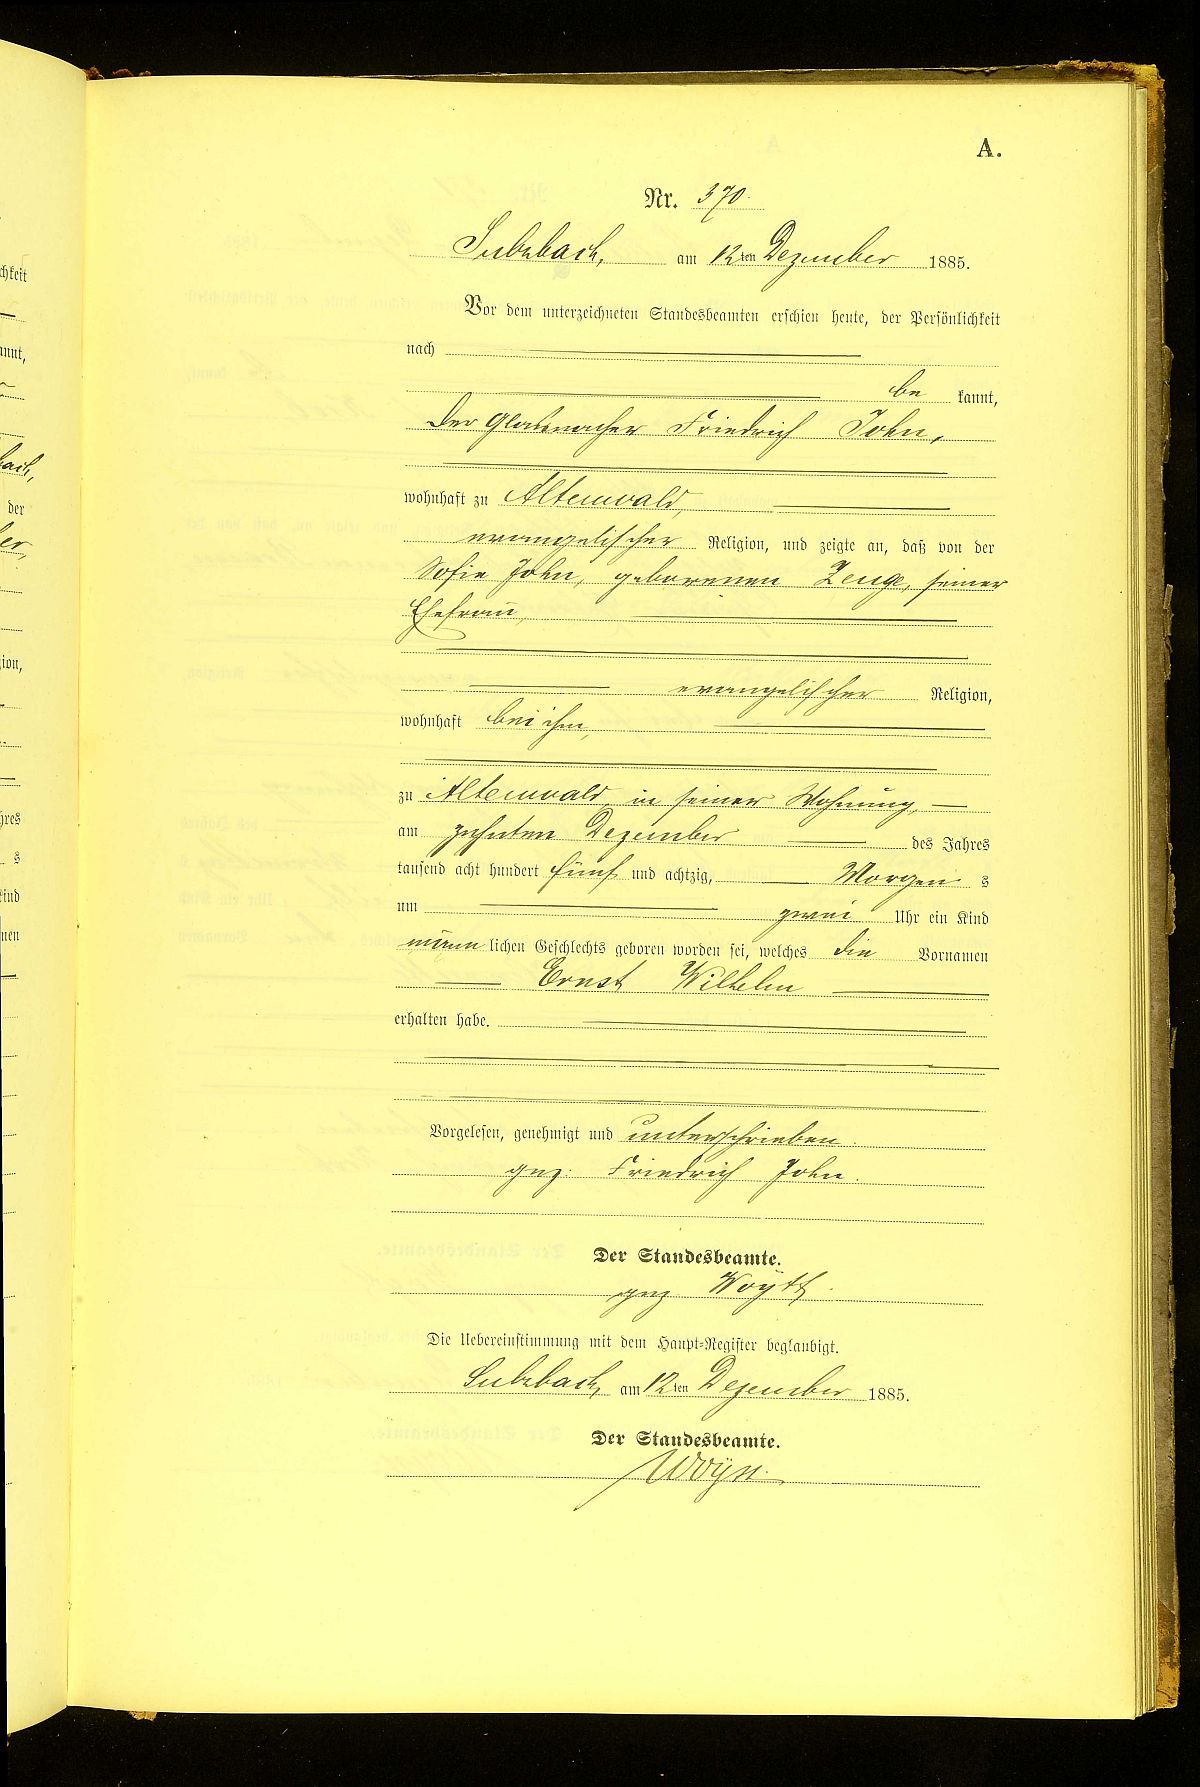 A.
Nr. 370.
Sulzbach, am 12ten Dezember 1885.
Vor dem unterzeichneten Standesbeamten erschien heute, der Persönlichkeit
nach
be kannt,
der Glasmacher Friedrich John,
wohnhaft zu Altenwald,
evangelischer Religion, und zeigte an, daß von der
Sofie John, geborenen Zeuge, seiner
Ehefrau,
evangelischer Religion,
wohnhaft bei ihm,
zu Altenwald in seiner Wohnung,
am zehnten Dezember des Jahres
tausend acht hundert fünf und achtzig, Morgen s
um zwei Uhr ein Kind
männ lichen Geschlechts geboren worden sei, welches die Vornamen
Ernst Wilhelm
erhalten habe.
Vorgelesen, genehmigt und unterschrieben.
gez. Friedrich John.
Der Standesbeamte.
gez Woytt.
Die Uebereinstimmung mit dem Haupt-Register beglaubigt.
Sulzbach, am 12ten Dezember 1885.
Der Standesbeamte.
Woytt